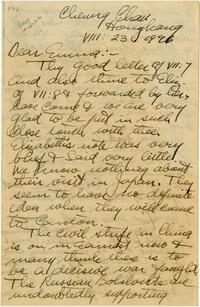 Cheung Chau,
Hongkong
VIII: 23: 1926
Dear Emma:-
Thy good letter of VII:7
and also thine to Eliz.
of VII:8 & forwarded by
have come & we are very
glad to be put in such
close touch with thee.
Elizabeth's note was very
brief & said very little.
We know nothing about
their visit in Japan. They
seem to have no definite
idea when they will come
to Canton.
The civil strife in China
is on in earnest now &
many think there is to
be a decisive war fought.
The Russian Bolsheviks are
undoubtedly supporting